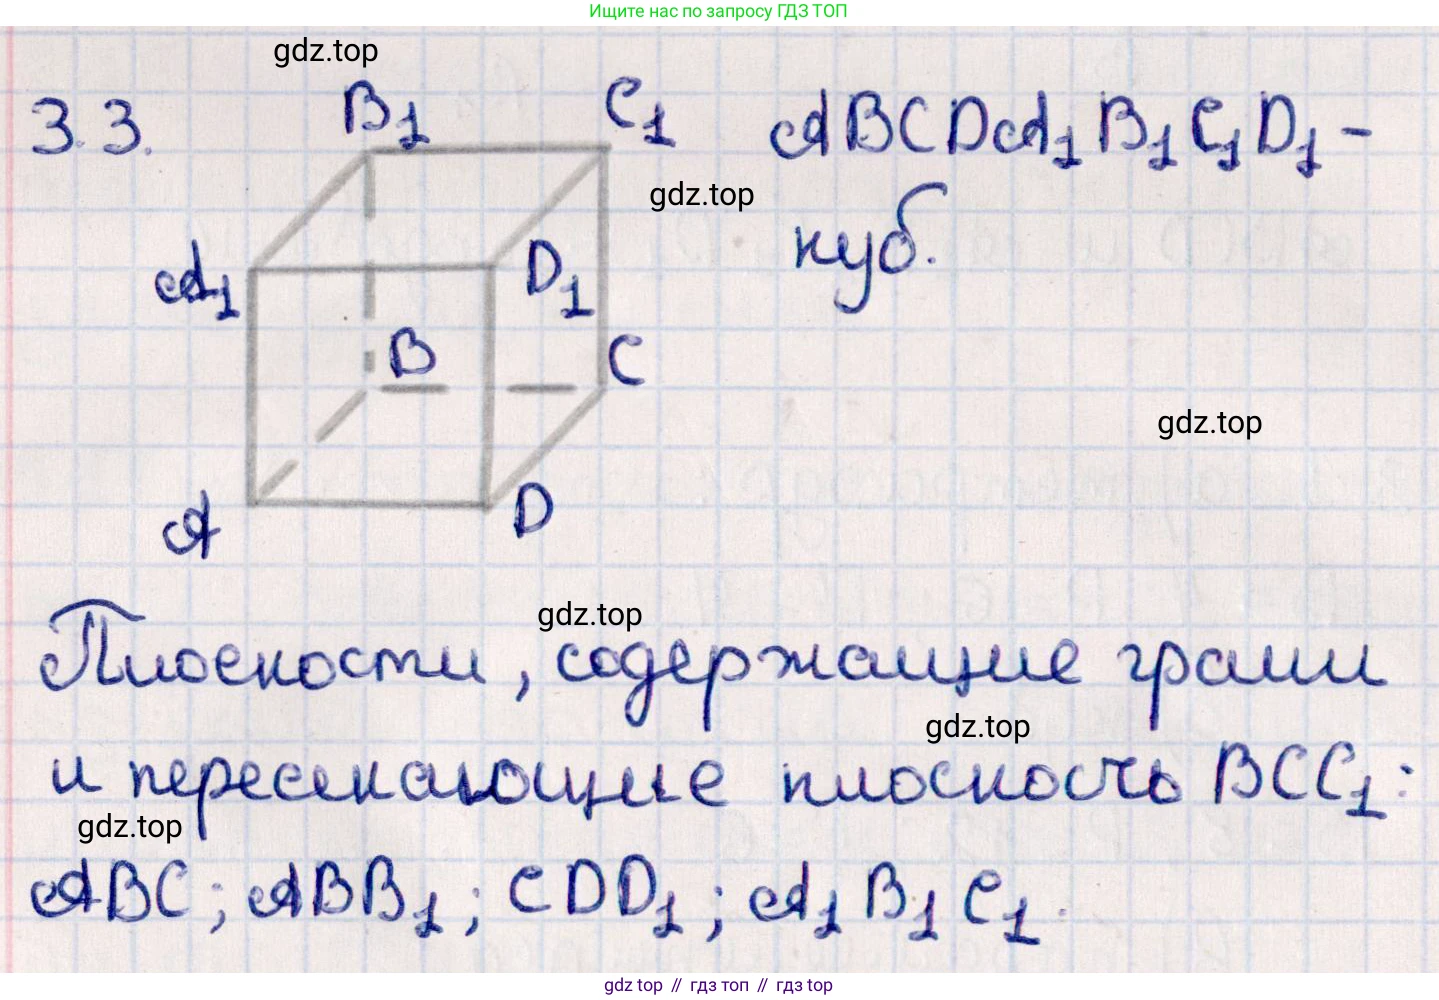 Ищите нас по запросу ГДЗ ТОП
gdz.top
3.3.
B₁
C₁
ABCDA₁B₁C₁D₁ –
gdz.top
куб.
A₁
D₁
B
C
gdz.top
A
D
gdz.top
Плоскости, содержащие грани
gdz.top
и пересекающие плоскость BCC₁:
gdz.top
ABC; ABB₁; CDD₁; A₁B₁C₁.
gdz top // гдз топ // гдз top